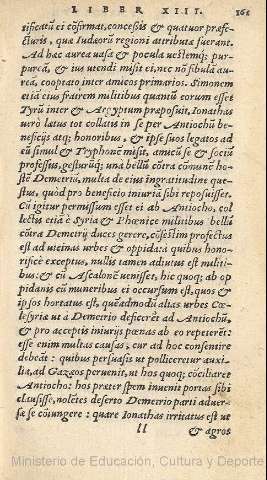 LIBER XIII.
tificatũ ei cõfirmat, concessis & quatuor præfe-
cturis, quæ Iudæorũ regioni attributæ fuerant.
Ad hæc aurea uasa & pocula uestemq; pur-
pureã, & ius utendi misit ei, nec nõ fibula au-
rea, cooptato inter amicos primarios. Simonem
etiã eius fratrem militibus quantũ eorum esset
Tyrũ inter & Aegyptum præposuit, Ionathas
uerò lætus tot collatis in se per Antiochũ be-
neficijs atq; honoribus, & ipse suos legatos ad
eũ simul & Tryphonẽ misit, amicũ se & sociũ
professus, gesturũq; unà bellũ cõtra cõmunẽ ho-
stẽ Demetriũ, multa de eius ingratitudine que-
stus, quòd pro beneficio iniuriã sibi reposuisset.
Cũ igitur permissum esset ei ab Antiocho, col
lectis etiã è Syria & Phœnice militibus bellũ
cõtra Demetrij duces gerere, cõfestim profectus
est ad uicinas urbes & oppida: à quibus hono-
rificè exceptus, nullis tamen adiutus est militi-
bus: & cũ Ascalonẽ uenisset, hic quoq; ab op
pidanis cũ muneribus ei occursum est, quos &
ipsos hortatus est, quẽadmodũ alias urbes Cœ-
lesyriæ ut à Demetrio deficerẽt ad Antiochũ,
& pro acceptis iniurijs pœnas ab eo repeterẽt:
esse enim multas causas, cur ad hoc consentire
debeãt: quibus persuasis ut pollicerẽtur auxi-
lia, ad Gazæos peruenit, ut hos quoq; cõciliaret
Antiocho: hos præter spem inuenit portas sibi
clausisse, nolẽtes deserto Demetrio parti aduer-
sæ se cõiungere: quare Ionathas irritatus est ut
ll & agros
Ministerio de Educación, Cultura y Deporte